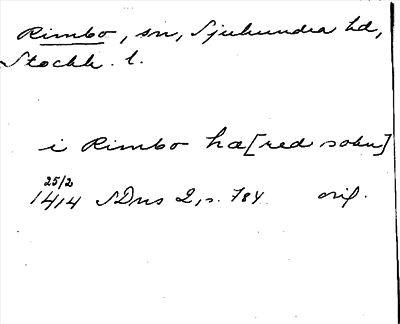 Rimbo, sn, Sjuhundra hd,
Stockh. l.
i Rimbo hæ[red sokn]
25/2
1414 SDns 2, s. 784 orig.